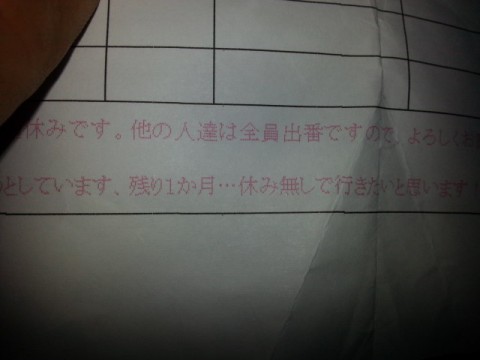 休みです。他の人達は全員出番ですので、よろしくお
としています、残り1か月…休み無しで行きたいと思います